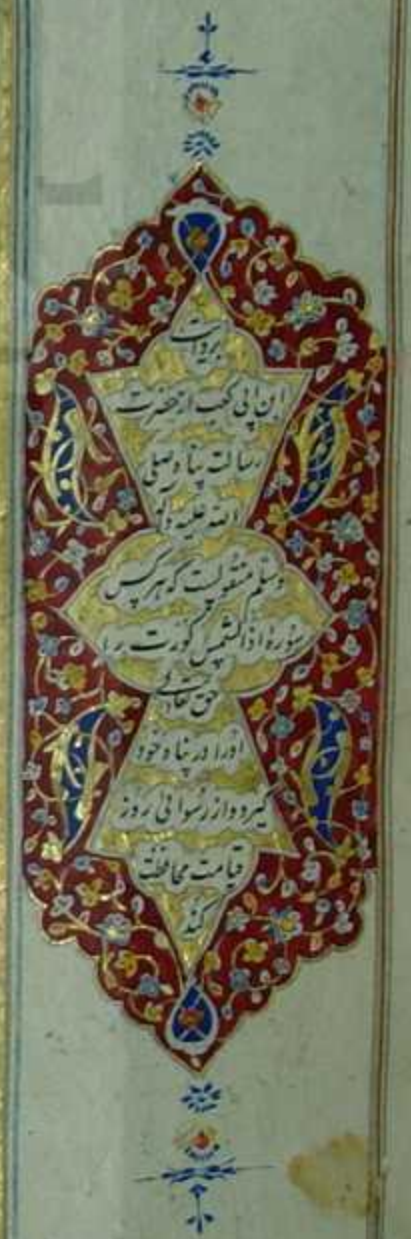 بروایت
ابن ابی کعب از حضرت
رسالت پناه صلی
الله علیه وآله
وسلم منقولست که هر کس
سوره اذا الشمس کورت را
حق تعالی
اورا در پناه خود
گیرد و از رسوائی روز
قیامت محافظت
کند